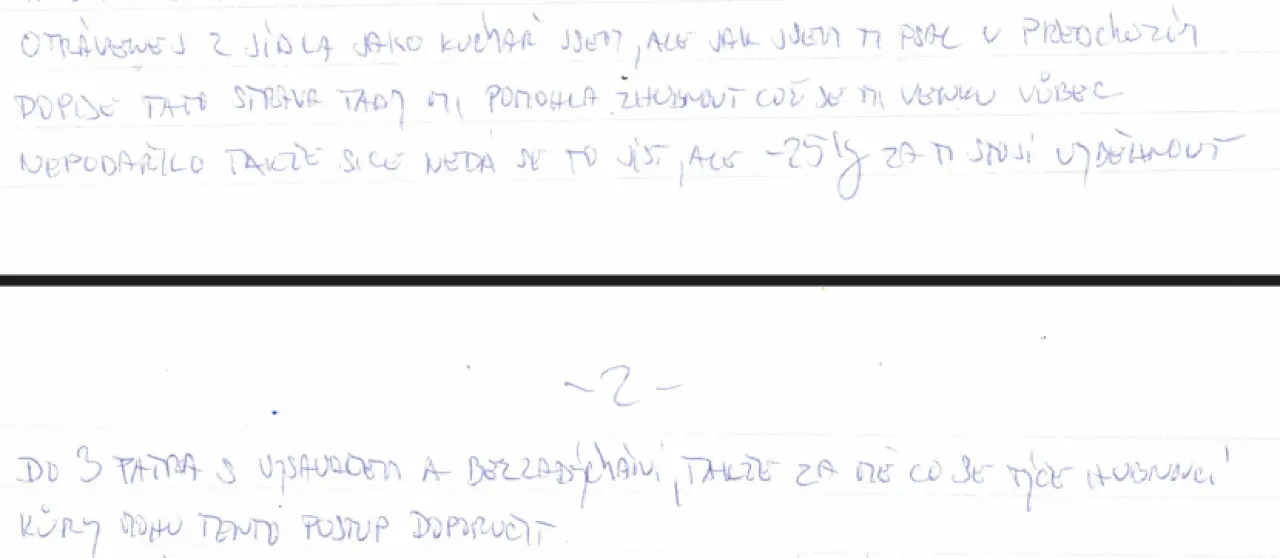 OTRÁVENEJ Z JÍDLA JAKO KUCHAŘ JSEM, ALE JAK JSEM TI PSAL V PŘEDCHOZÍM
DOPISE TATO STRAVA TADY MI POMOHLA ZHUBNOUT COŽ SE MI VENKU VŮBEC
NEPODAŘILO TAKŽE SICE NEDÁ SE TO JÍST, ALE -25 kg ZA TI STOJÍ VYBĚHNOUT
-2-
DO 3 PATRA S VYSAVAČEM A BEZ ZADÝCHÁNÍ, TAKŽE ZA MĚ CO SE TÝČE HUBNOUCÍ
KŮRY MOHU TENTO POSTUP DOPORUČIT.